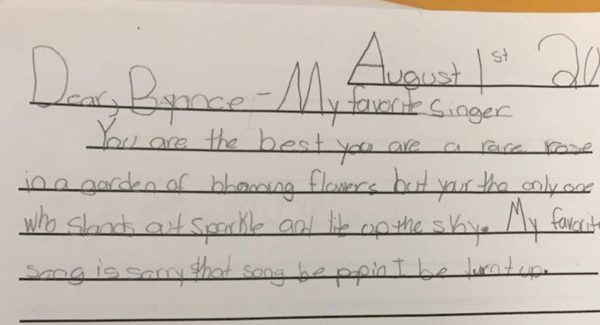 August 1st 20
Dear, Bynce - My favorite singer
You are the best you are a rare rose
in a garden of blooming flowers but your the only one
who stands out sparkle and lite up the sky. My favorit
song is sorry that song be poppin I be turnt up.